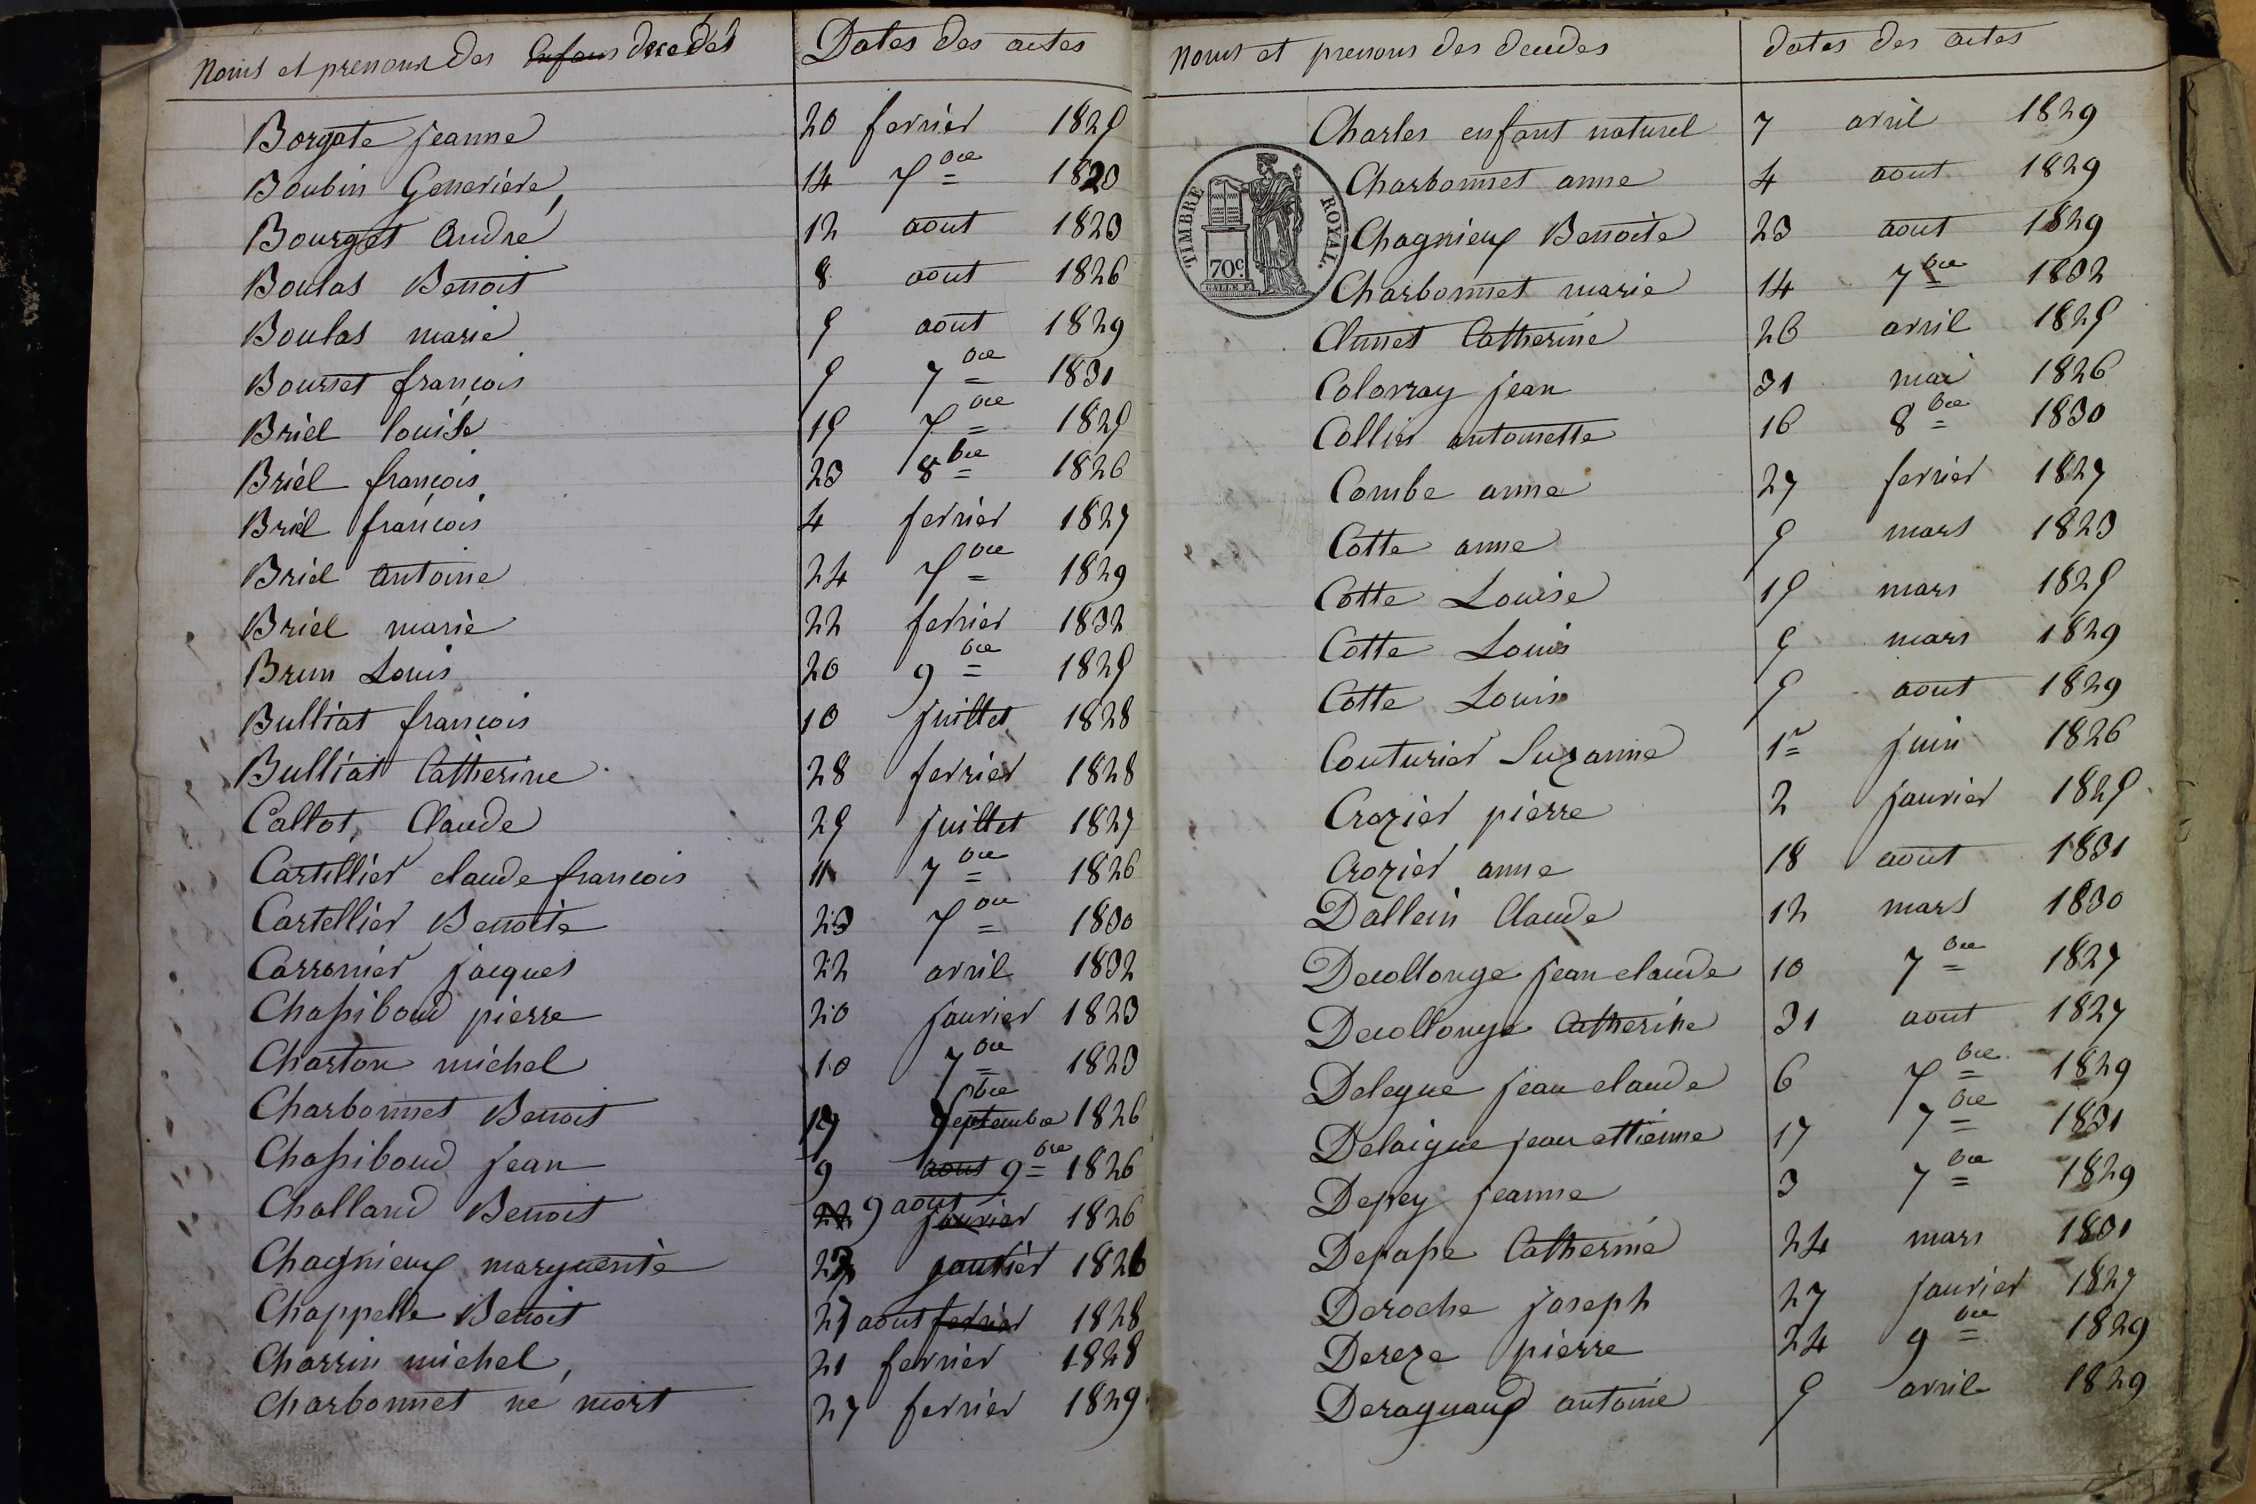 Noms et prenoms des Enfans decedés Dates des actes
Borgate jeanne 20 fevrier 1825
Boubin Genevieve, 14 7bre 1823
Bourget André 12 aout 1823
Boulas Benoit 8 aout 1826
Boulas marie 9 aout 1829
Bourset françois 9 7bre 1831
Briel louise 19 7bre 1825
Briel françois 23 8bre 1826
Briel françois 4 fevrier 1827
Briel Antoine 24 7bre 1829
Briel marie 22 fevrier 1832
Brun Louis 20 9bre 1825
Bulliat françois 10 juillet 1828
Bulliat Catherine 28 fevrier 1828
Callot, Claude 29 juillet 1827
Cartellier claude françois 11 7bre 1826
Cartellier Benoite 23 7bre 1830
Carronier jacques 22 avril 1832
Chassiboud pierre 20 janvier 1823
Charton michel 10 7bre 1823
Charbonnet Benoit 19 Septembre 1826
Chassiboud jean 9 aout 9bre 1826
Challand Benoit 22 9 aout janvier 1826
Chagnieux marguerite janvier 1826
Chappelle Benoit 27 aout fevrier 1828
Charrin michel, 21 fevrier 1828
Charbonnet né mort 27 fevrier 1829
Noms et prenoms des decedes dates des actes
Charles enfant naturel 7 avril 1829
Charbonnet anne 4 aout 1829
Chagnieux Benoite 23 aout 1829
Charbonnet marie 14 7bre 1832
Clunet Catherine 26 avril 1825
Colovray jean 31 mai 1826
Collin antoinette 16 8bre 1830
Combe anne 27 fevrier 1827
Cotte anne 9 mars 1823
Cotte Louise 19 mars 1825
Cotte Louis 9 mars 1829
Cotte Louis 9 aout 1829
Couturier Suzanne 1er juin 1826
Crozier pierre 2 janvier 1825
Crozier anne 18 aout 1831
Dallein Claude 12 mars 1830
Decollonge jean claude 10 7bre 1827
Decollonge Catherine 31 aout 1827
Delegue jean claude 6 7bre 1829
Delaigue jean ettienne 17 7bre 1831
Depey jeanne 3 7bre 1829
Depape Catherine 24 mars 1831
Deroche joseph 27 janvier 1827
Dereze pierre 24 9bre 1829
Deragnaud antoine 9 avril 1829
TIMBRE ROYAL.
70c.